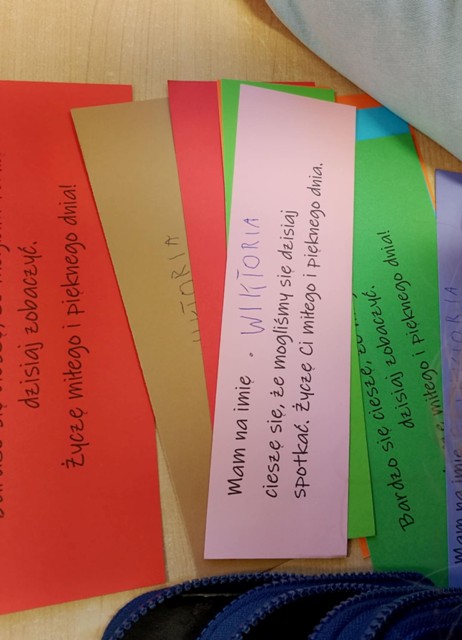 dzisiaj zobaczyć.
Życzę miłego i pięknego dnia!
Mam na imię - WIKTORIA
cieszę się, że mogliśmy się dzisiaj
spotkać. Życzę Ci miłego i pięknego dnia.
Bardzo się cieszę,
dzisiaj zobaczyć.
miłego i pięknego dnia!
Mam na imię